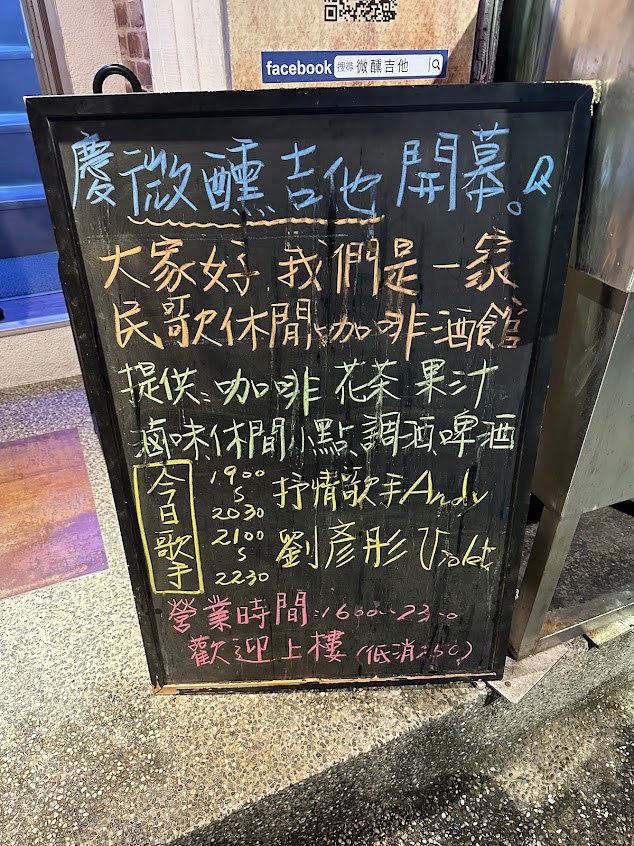 facebook 搜尋 微醺吉他
慶微醺吉他開幕。
大家好 我們是一家
民歌休閒咖啡酒館
提供:咖啡 花茶 果汁
滷味、休閒小點、調酒、啤酒
今日歌手
1900
2030
抒情歌手Andy
2100
2230
劉彥彤 Violet
營業時間:1600~2300
歡迎上樓(低消250)